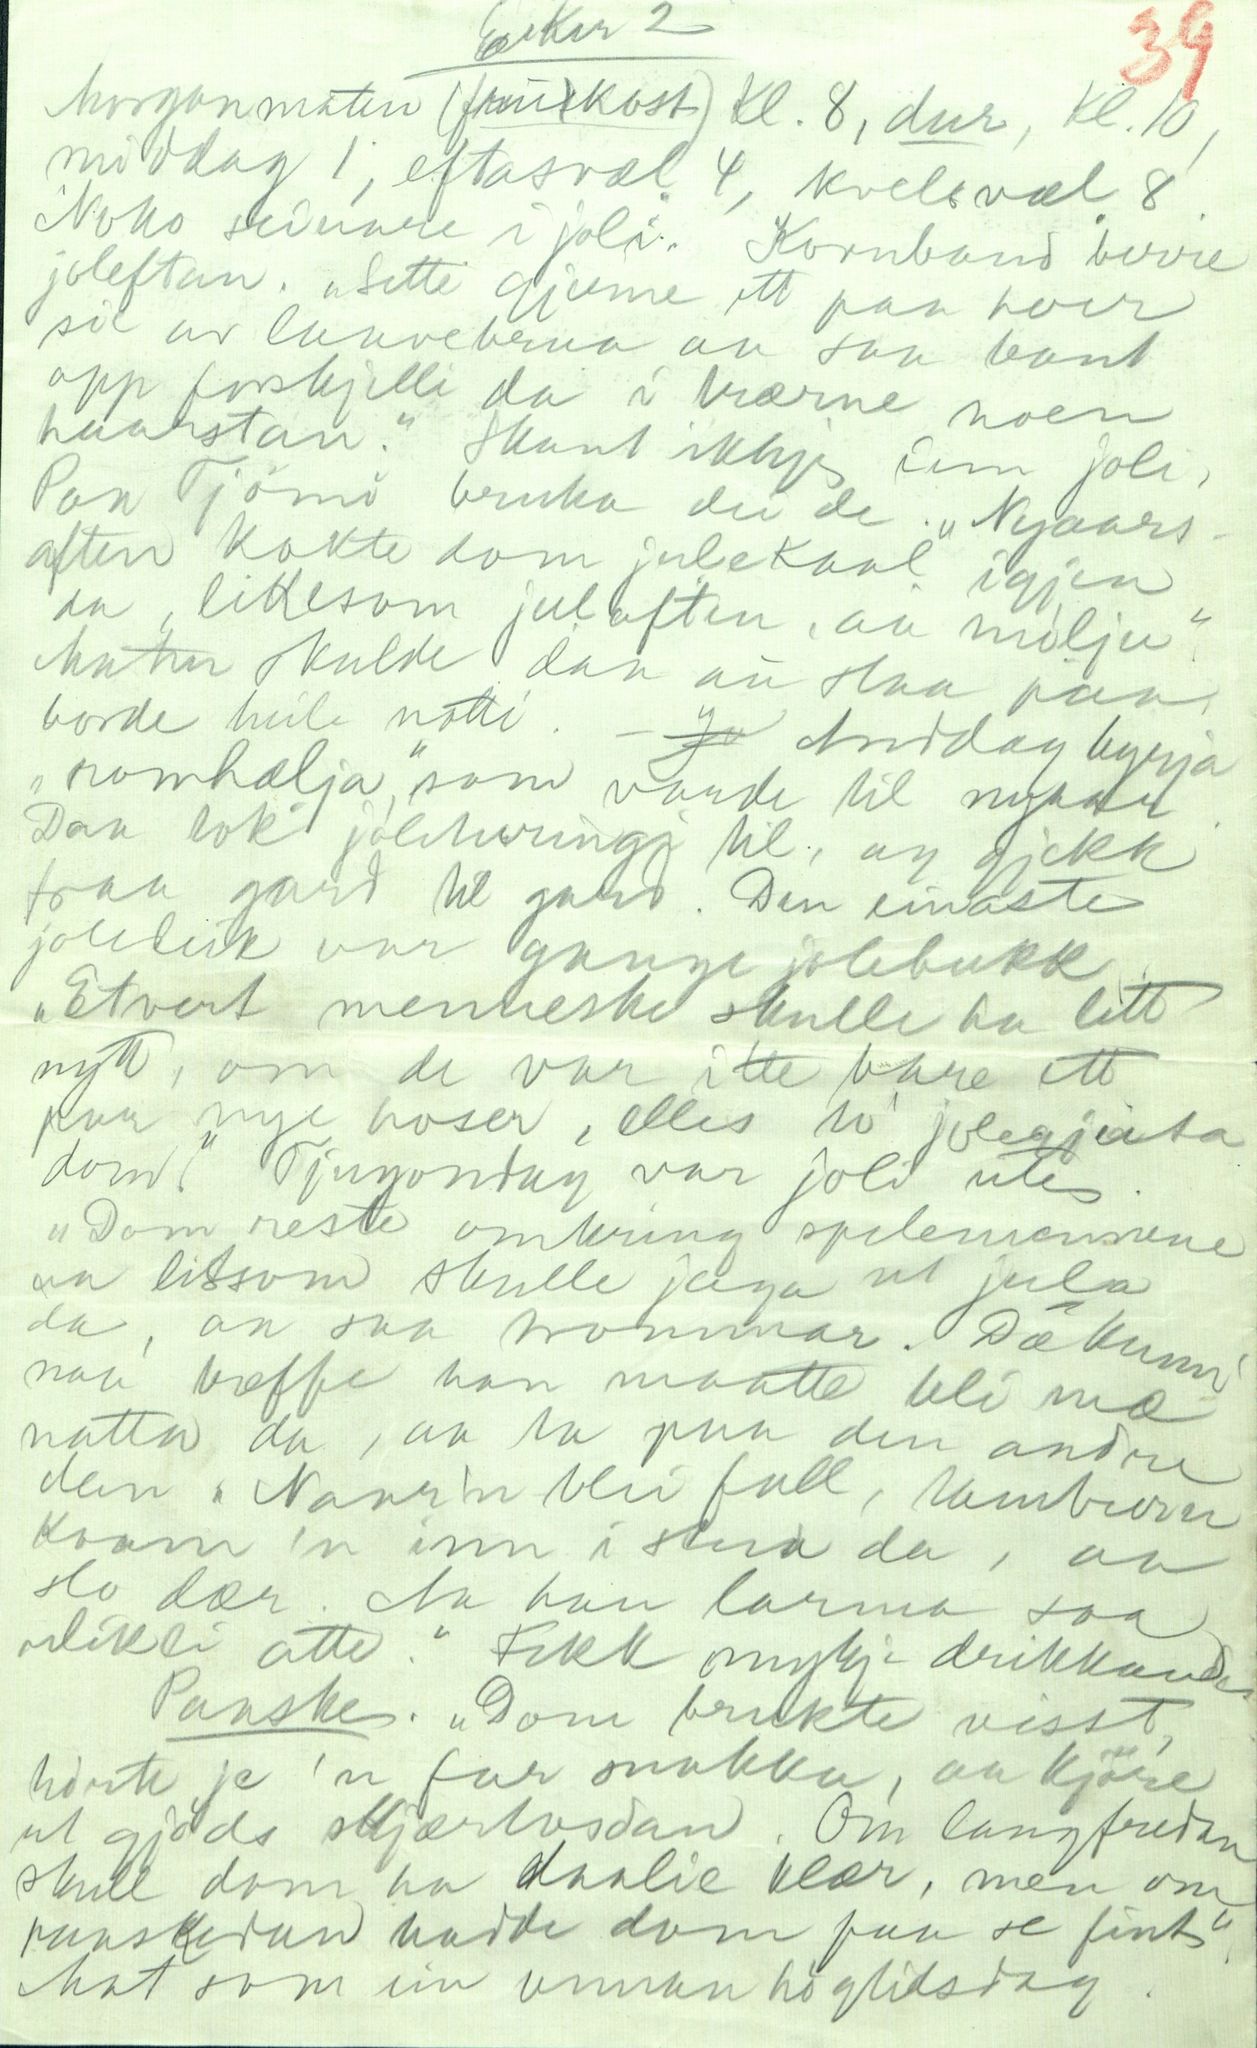 Eiker 2
39
Morgonmaten (frukost) Kl. 8, dur, Kl. 10,
middag 1, eftasvæl 4, kvelsvæl 8.
Noko seinare i joli. Kornband
joleftan. "Sette gjerne ett paa hver
si av laavebrua aa saa bant
opp forskjelli da i trærne noen
haarstan." Skant ikkje inn joli,
Paa Tjömö bruka dei de. "Nyaars-
aften kokte dom julekaal igjen
da, likesom julaften, aa mölju".
Maten skulde daa au staa paa
borde heile notti. - Andredag byrja
"romhælja", som varde til nyaar.
Daa tok joleheringi til, og gjekk
fraa gard til gard. Den einaste
joleleik var gange jolebukk.
"Etvert menneske skulle ha litt
nytt, om de var itte bare ett
par nye hoser, elles to jolegjeita
dom." Tjugondag var joli ute.
"Dom reste omkring spelemennene
aa litsom skulle jaga ut jula
da, aa saa trommar. Dæ kunne
naa træffe han maatte bli mæ
natta da, aa ta paa den andre
dan. Naar'n blei full,
kaam 'n inn i stua da, aa
slo dær. Aa han larma saa
atte." Fekk mykje drikkandes
Paaske. "Dom brukte visst,
hörte je 'n far snakka, aa kjöre
ut gjöds skjærtosdan. Om langfredan
skull dom ha daalie klær, men om
paaskedan hadde dom paa se fint".
Mat som ein annan högtidsdag.